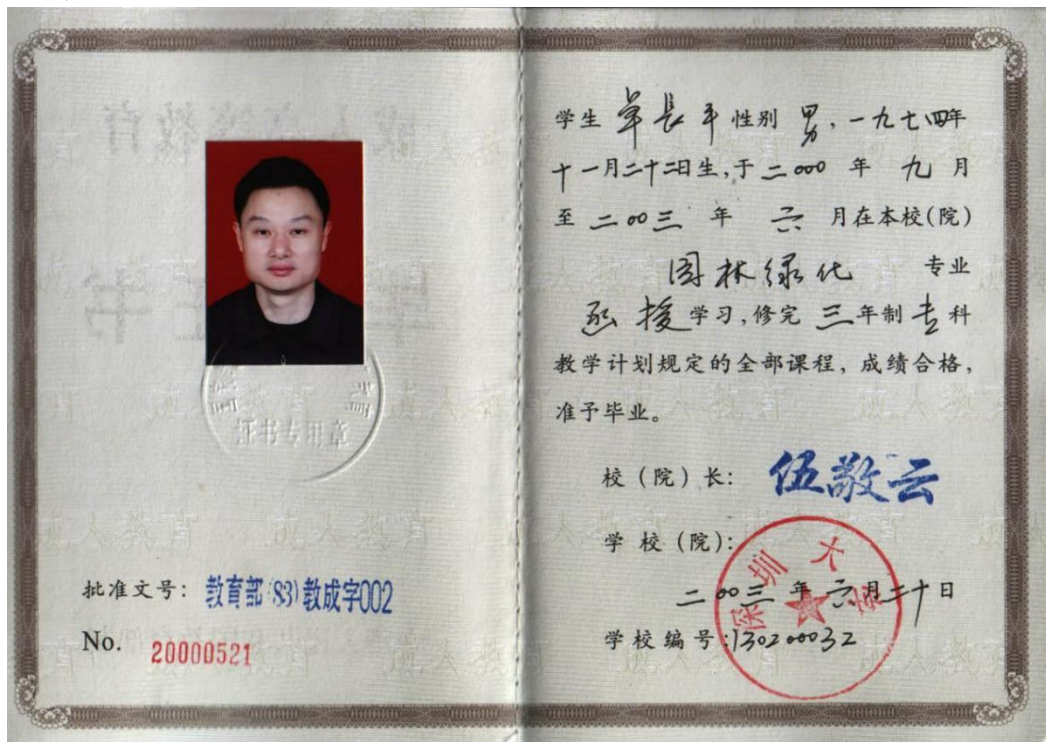 证书专用章
批准文号: 教育部(83)教成字002
No. 20000521
学生 单长平 性别 男, 一九七四年
十一月二十二日生,于二000 年 九 月
至 二00三 年 六 月在本校(院)
园林绿化 专业
函授学习,修完 三年制专科
教学计划规定的全部课程, 成绩合格,
准予毕业。
校 (院) 长: 伍敬云
学 校 (院):
深圳大学
二00三 年 六月二十日
学校编号:130200032